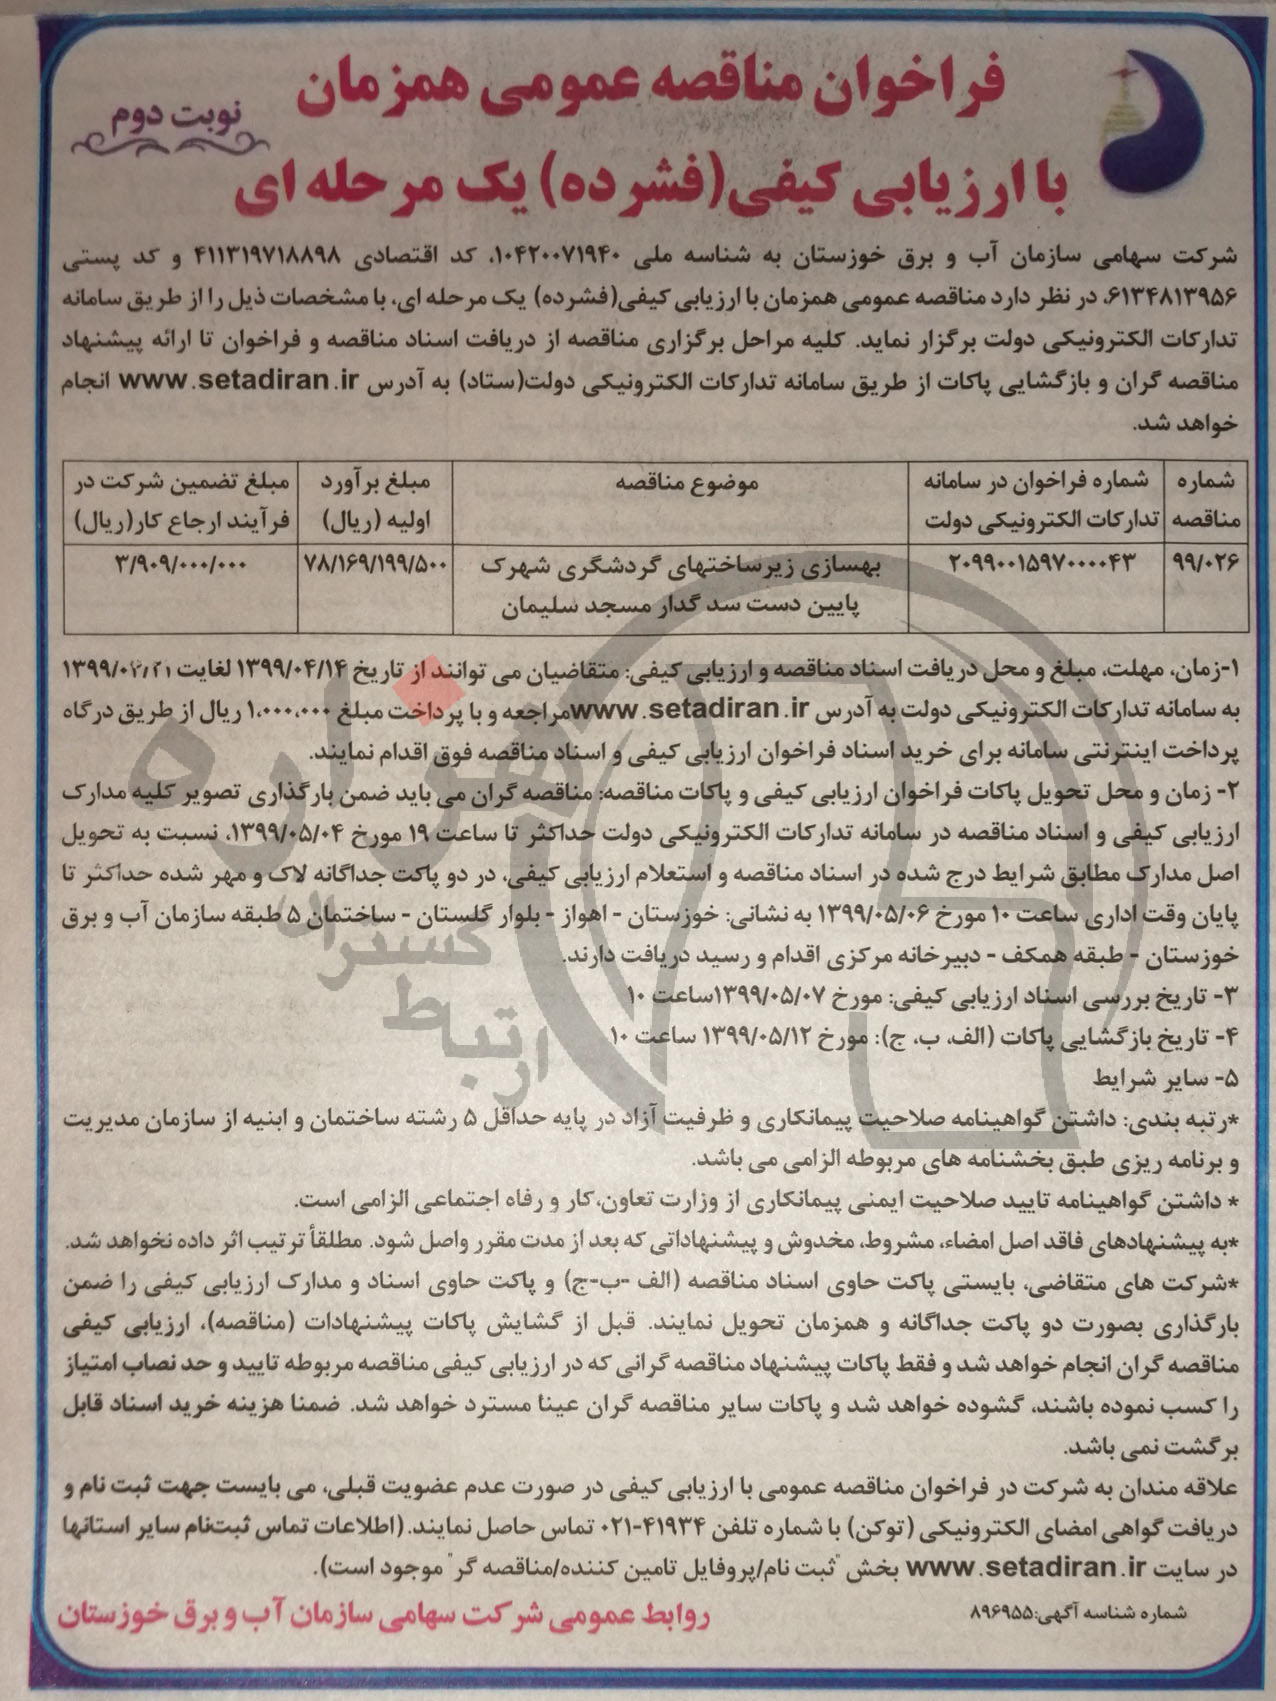 فراخوان مناقصه عمومی همزمان
نوبت دوم
با ارزیابی کیفی(فشرده) یک مرحله ای
شرکت سهامی سازمان آب و برق خوزستان به شناسه ملی ۱۰۴۲۰۰۷۱۹۴۰، کد اقتصادی ۴۱۱۳۱۹۷۱۸۸۹۸ و کد پستی
۶۱۳۴۸۱۳۹۵۶، در نظر دارد مناقصه عمومی همزمان با ارزیابی کیفی(فشرده) یک مرحله ای، با مشخصات ذیل را از طریق سامانه
تدارکات الکترونیکی دولت برگزار نماید. کلیه مراحل برگزاری مناقصه از دریافت اسناد مناقصه و فراخوان تا ارائه پیشنهاد
مناقصه گران و بازگشایی پاکات از طریق سامانه تدارکات الکترونیکی دولت(ستاد) به آدرس www.setadiran.ir انجام
خواهد شد.
شماره مناقصه
شماره فراخوان در سامانه تدارکات الکترونیکی دولت
موضوع مناقصه
مبلغ برآورد اولیه (ریال)
مبلغ تضمین شرکت در فرآیند ارجاع کار(ریال)
۹۹/۰۲۶
۲۰۹۹۰۰۱۵۹۷۰۰۰۰۴۳
بهسازی زیرساختهای گردشگری شهرک
پایین دست سد گدار مسجد سلیمان
۷۸/۱۶۹/۱۹۹/۵۰۰
۳/۹۰۹/۰۰۰/۰۰۰
۱-زمان، مهلت، مبلغ و محل دریافت اسناد مناقصه و ارزیابی کیفی: متقاضیان می توانند از تاریخ ۱۳۹۹/۰۴/۱۴ لغایت
به سامانه تدارکات الکترونیکی دولت به آدرس www.setadiran.irمراجعه و با پرداخت مبلغ ۱،۰۰۰،۰۰۰ ریال از طریق درگاه
پرداخت اینترنتی سامانه برای خرید اسناد فراخوان ارزیابی کیفی و اسناد مناقصه فوق اقدام نمایند.
۲- زمان و محل تحویل پاکات فراخوان ارزیابی کیفی و پاکات مناقصه: مناقصه گران می باید ضمن بارگذاری تصویر کلیه مدارک
ارزیابی کیفی و اسناد مناقصه در سامانه تدارکات الکترونیکی دولت حداکثر تا ساعت ۱۹ مورخ ۱۳۹۹/۰۵/۰۴، نسبت به تحویل
اصل مدارک مطابق شرایط درج شده در اسناد مناقصه و استعلام ارزیابی کیفی، در دو پاکت جداگانه لاک و مهر شده حداکثر تا
پایان وقت اداری ساعت ۱۰ مورخ ۱۳۹۹/۰۵/۰۶ به نشانی: خوزستان - اهواز - بلوار گلستان - ساختمان ۵ طبقه سازمان آب و برق
خوزستان - طبقه همکف - دبیرخانه مرکزی اقدام و رسید دریافت دارند.
۳- تاریخ بررسی اسناد ارزیابی کیفی: مورخ ۱۳۹۹/۰۵/۰۷ساعت ۱۰
۴- تاریخ بازگشایی پاکات (الف، ب، ج): مورخ ۱۳۹۹/۰۵/۱۲ ساعت ۱۰
۵- سایر شرایط
*رتبه بندی: داشتن گواهینامه صلاحیت پیمانکاری و ظرفیت آزاد در پایه حداقل ۵ رشته ساختمان و ابنیه از سازمان مدیریت
و برنامه ریزی طبق بخشنامه های مربوطه الزامی می باشد.
* داشتن گواهینامه تایید صلاحیت ایمنی پیمانکاری از وزارت تعاون،کار و رفاه اجتماعی الزامی است.
*به پیشنهادهای فاقد اصل امضاء، مشروط، مخدوش و پیشنهاداتی که بعد از مدت مقرر واصل شود. مطلقأ ترتیب اثر داده نخواهد شد.
*شرکت های متقاضی، بایستی پاکت حاوی اسناد مناقصه (الف -ب-ج) و پاکت حاوی اسناد و مدارک ارزیابی کیفی را ضمن
بارگذاری بصورت دو پاکت جداگانه و همزمان تحویل نمایند. قبل از گشایش پاکات پیشنهادات (مناقصه)، ارزیابی کیفی
مناقصه گران انجام خواهد شد و فقط پاکات پیشنهاد مناقصه گرانی که در ارزیابی کیفی مناقصه مربوطه تایید و حد نصاب امتیاز
را کسب نموده باشند، گشوده خواهد شد و پاکات سایر مناقصه گران عینا مسترد خواهد شد. ضمنا هزینه خرید اسناد قابل
برگشت نمی باشد.
علاقه مندان به شرکت در فراخوان مناقصه عمومی با ارزیابی کیفی در صورت عدم عضویت قبلی، می بایست جهت ثبت نام و
دریافت گواهی امضای الکترونیکی (توکن) با شماره تلفن ۴۱۹۳۴-۰۲۱ تماس حاصل نمایند. (اطلاعات تماس ثبت‌نام سایر استانها
در سایت www.setadiran.ir بخش "ثبت نام/پروفایل تامین کننده/مناقصه گر" موجود است).
شماره شناسه آگهی:۸۹۶۹۵۵
روابط عمومی شرکت سهامی سازمان آب و برق خوزستان
هزاره
گستران
ارتباط